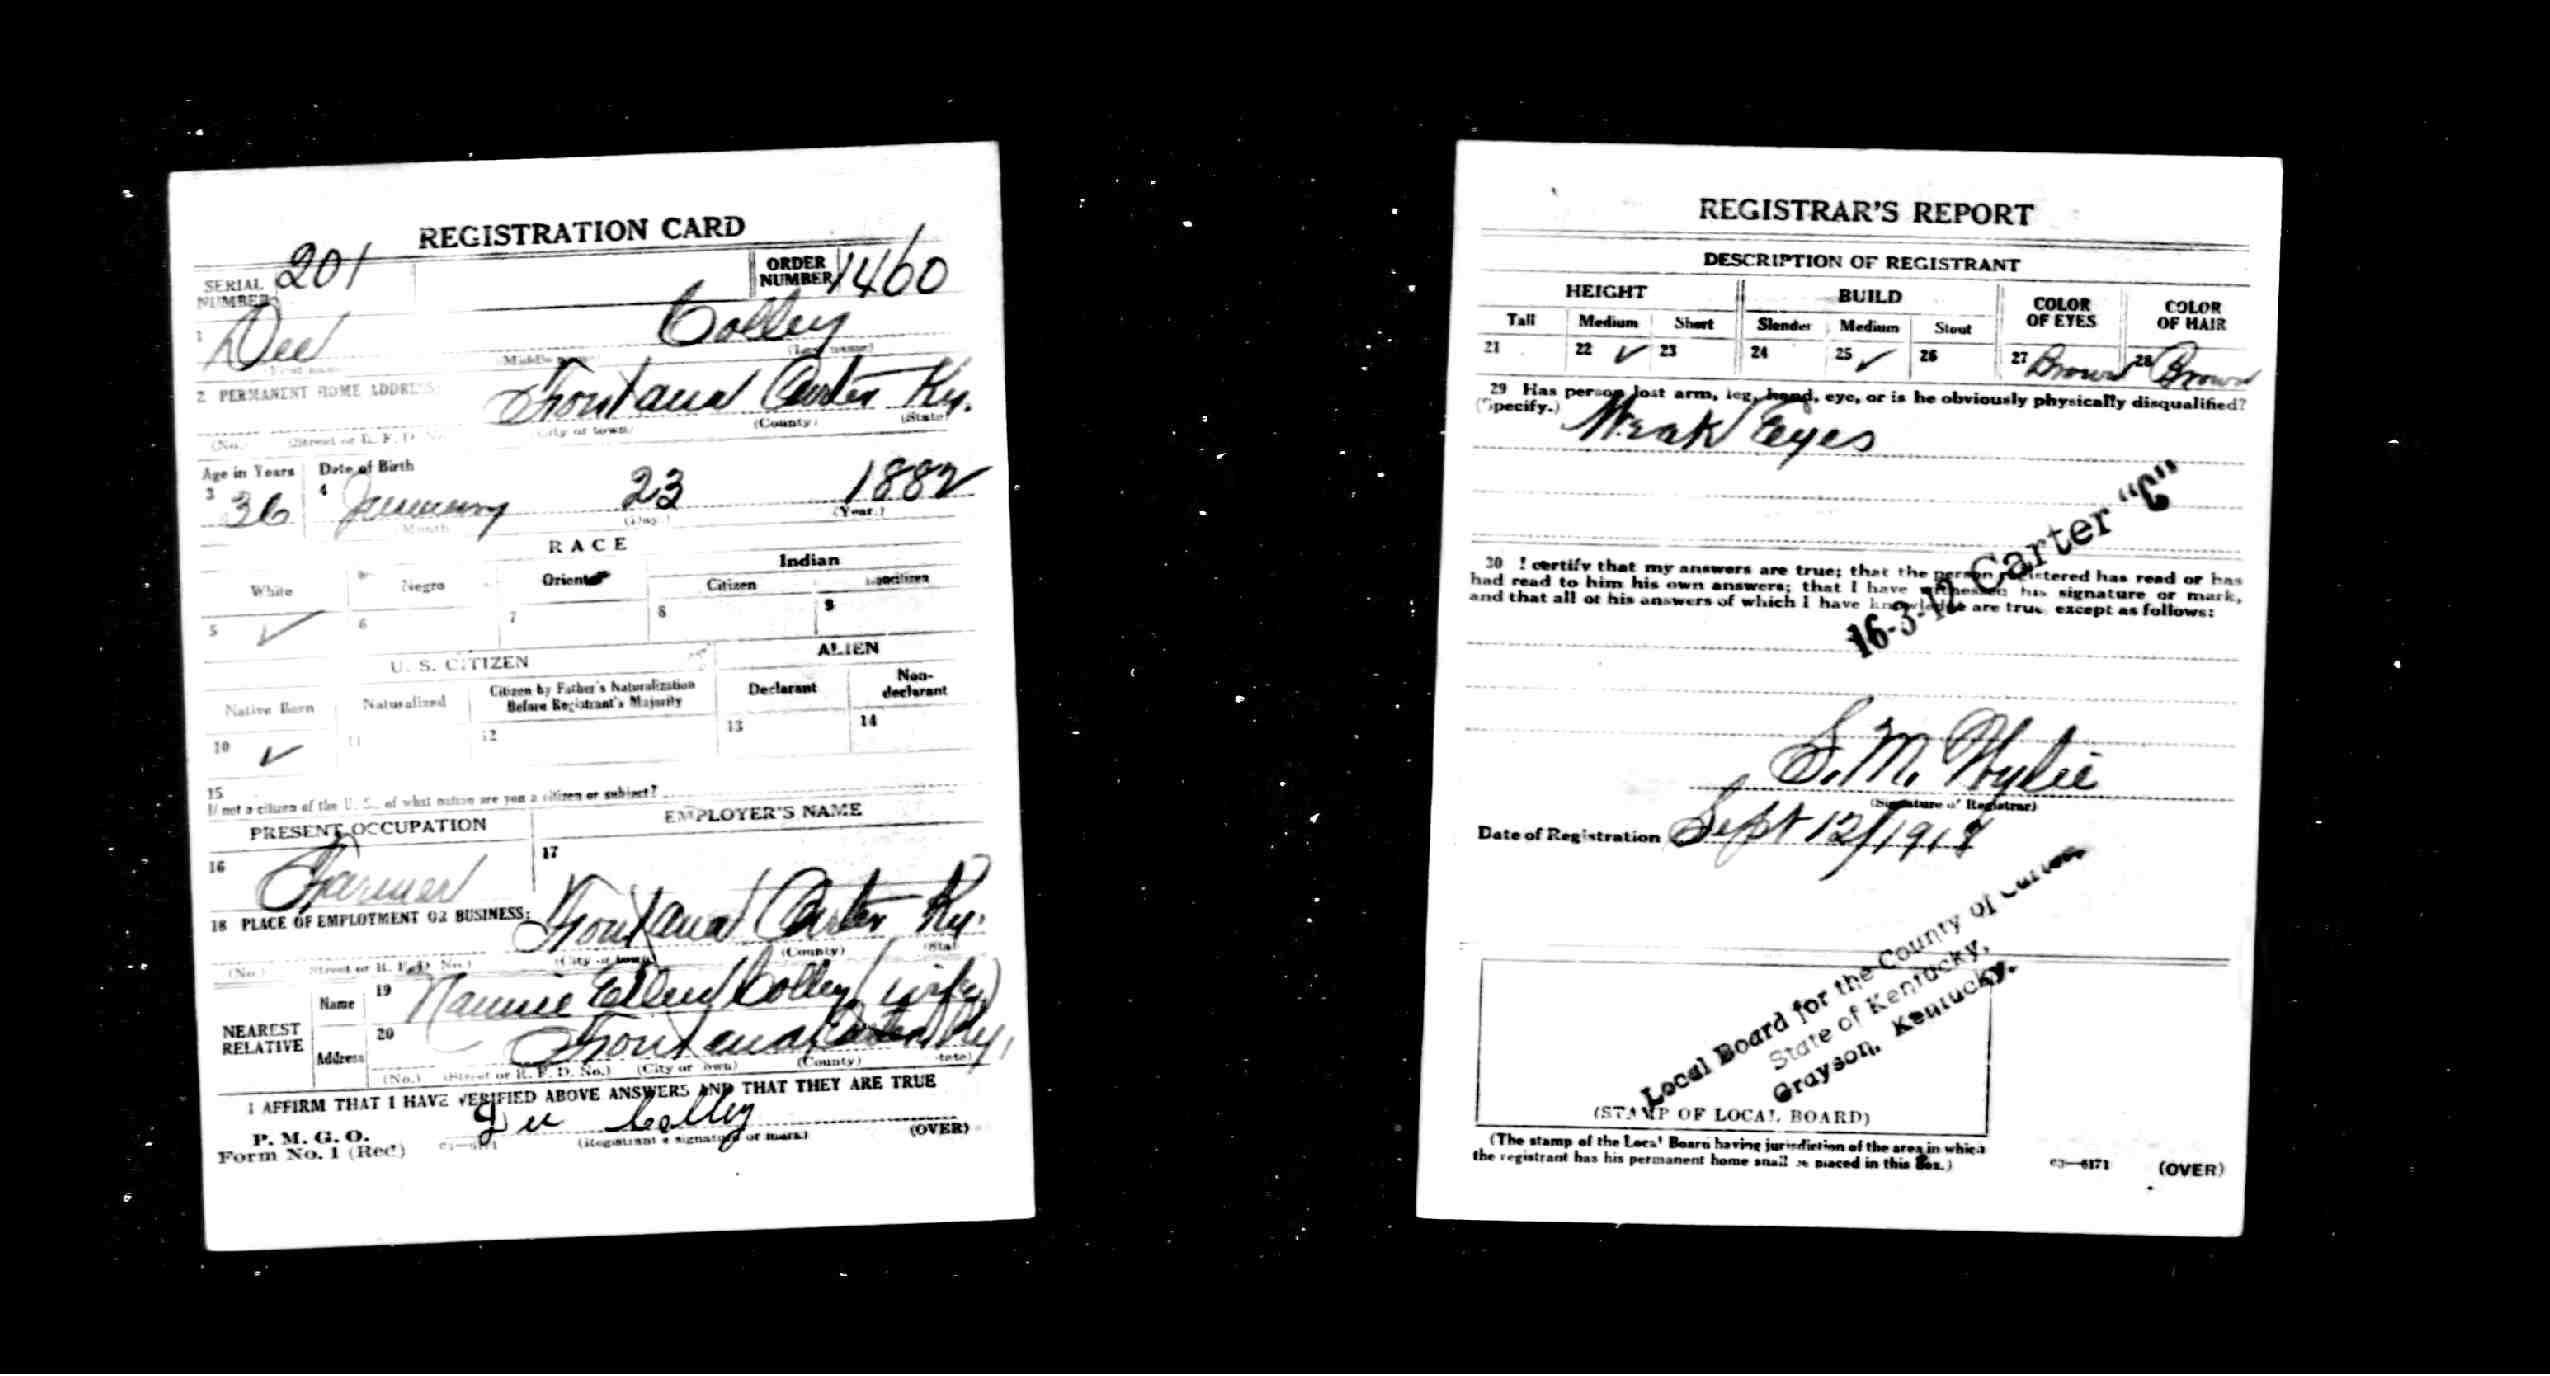 REGISTRATION CARD
SERIAL NUMBER 201
ORDER NUMBER 1460
1 Dee Colley
(First name) (Middle name) (Last name)
2 PERMANENT HOME ADDRESS: Fontana Carter Ky.
(No.) (Street or R. F. D. No.) (City or town) (County) (State)
Age in Years Date of Birth
3 36 4 January 23 1882
(Month) (Day.) (Year.)
RACE
White Negro Oriental Indian
Citizen Noncitizen
5 ✓ 6 7 8 9
U. S. CITIZEN ALIEN
Native Born Naturalized Citizen by Father's Naturalization Before Registrant's Majority Declarant Non-declarant
10 ✓ 11 12 13 14
15
If not a citizen of the U. S., of what nation are you a citizen or subject?
PRESENT OCCUPATION EMPLOYER'S NAME
16 Farmer 17
18 PLACE OF EMPLOYMENT OR BUSINESS: Carter Ky.
(No.) (Street or R. F. D. No.) (City or town) (County) (State)
NEAREST RELATIVE
Name 19 Nannie Ellen Colley (wife)
Address 20 Carter Ky.
(No.) (Street or R. F. D. No.) (City or town) (County) (State)
I AFFIRM THAT I HAVE VERIFIED ABOVE ANSWERS AND THAT THEY ARE TRUE
P. M. G. O.
Form No. 1 (Red) 03—6171 Dee Colley
(Registrant's signature or mark) (OVER)
REGISTRAR'S REPORT
DESCRIPTION OF REGISTRANT
HEIGHT BUILD COLOR OF EYES COLOR OF HAIR
Tall Medium Short Slender Medium Stout
21 22 ✓ 23 24 25 ✓ 26 27 Brown 28 Brown
29 Has person lost arm, leg, hand, eye, or is he obviously physically disqualified?
(Specify.) Weak Eyes
30 I certify that my answers are true; that the person registered has read or has
had read to him his own answers; that I have witnessed his signature or mark,
and that all of his answers of which I have knowledge are true, except as follows:
16-3-12 Carter "C"
S. M. Wylie
(Signature of Registrar)
Date of Registration Sept 12/1918
Local Board for the County of Carter
State of Kentucky,
Grayson, Kentucky.
(STAMP OF LOCAL BOARD)
(The stamp of the Local Board having jurisdiction of the area in which
the registrant has his permanent home shall be placed in this box.)
03—6171 (OVER)